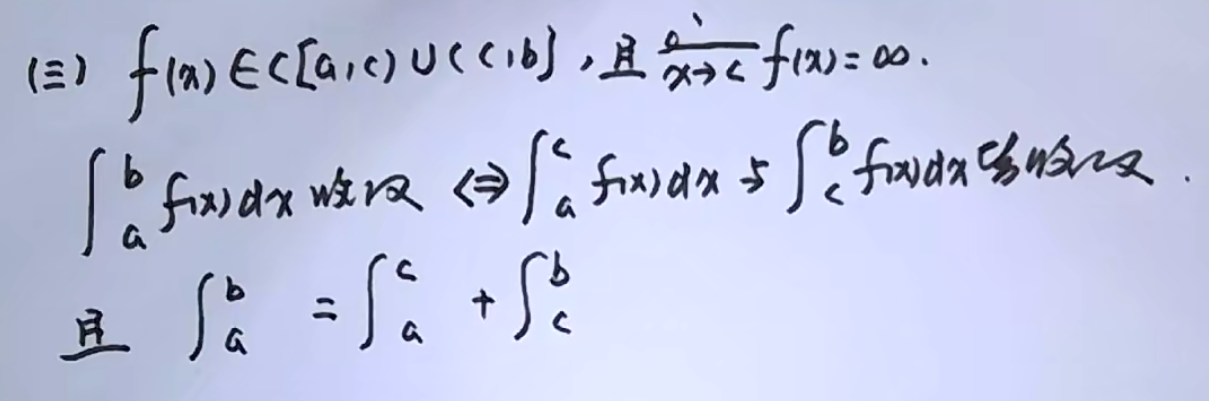 (三) f(x)∈C[a,c)∪(c,b],且 lim x→c f(x)=∞.
∫_a^b f(x)dx 收敛 ⇔ ∫_a^c f(x)dx 与 ∫_c^b f(x)dx 皆收敛.
且 ∫_a^b = ∫_a^c + ∫_c^b